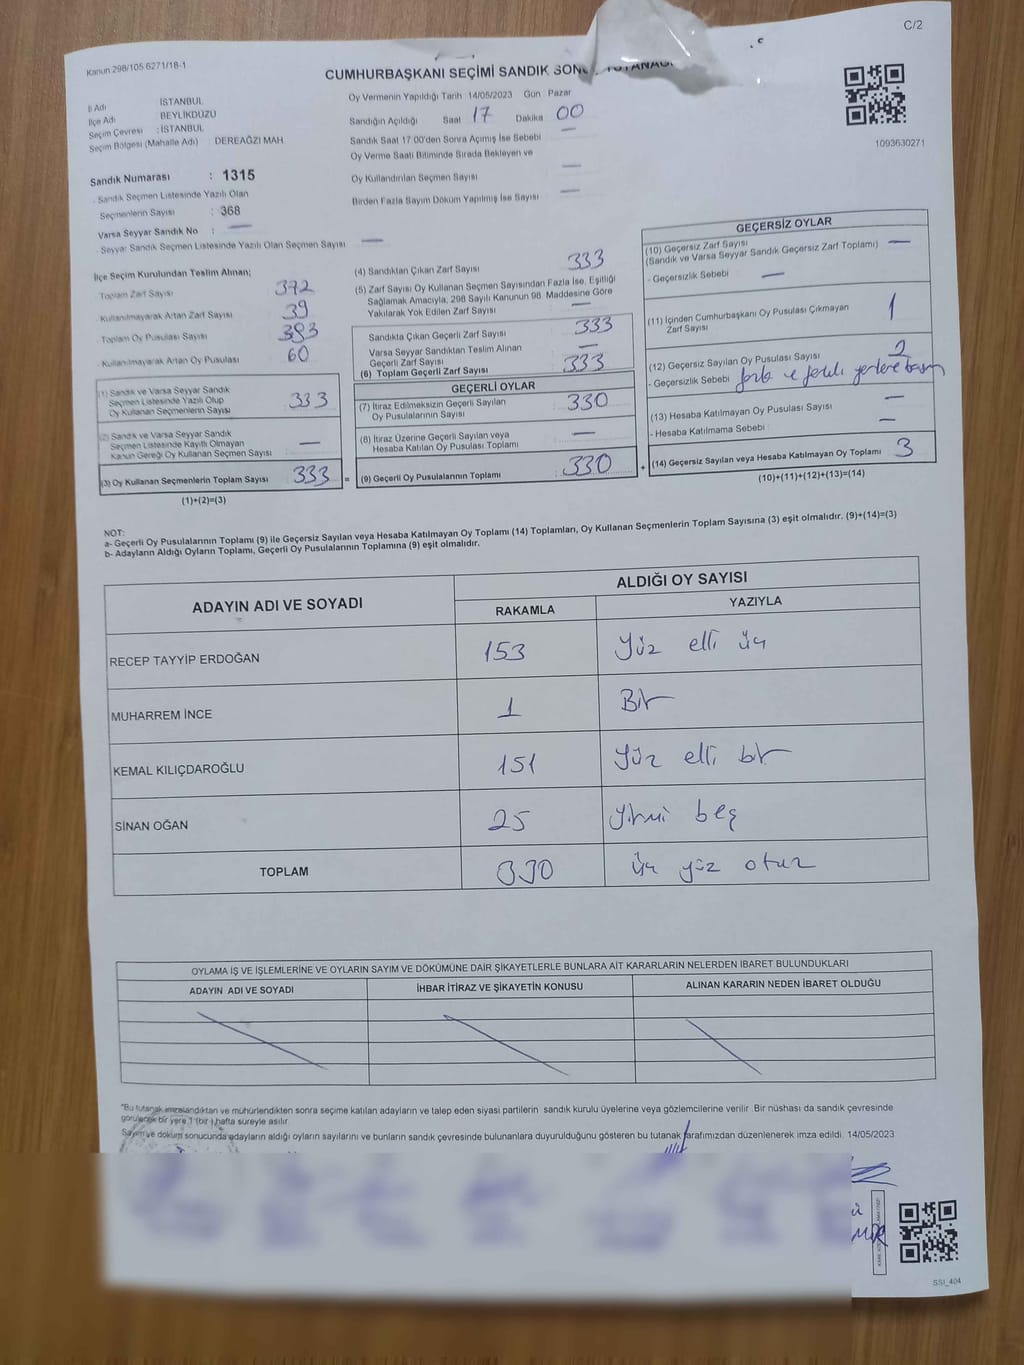 C/2
Kanun 298/105 6271/18-1
CUMHURBAŞKANI SEÇİMİ SANDIK SONUÇ TUTANAĞI
1093630271
İl Adı İSTANBUL
İlçe Adı BEYLİKDÜZÜ
Seçim Çevresi : İSTANBUL
Seçim Bölgesi (Mahalle Adı) : DEREAĞZI MAH
Sandık Numarası : 1315
- Sandık Seçmen Listesinde Yazılı Olan
Seçmenlerin Sayısı : 368
Varsa Seyyar Sandık No : —
- Seyyar Sandık Seçmen Listesinde Yazılı Olan Seçmen Sayısı —
Oy Vermenin Yapıldığı Tarih 14/05/2023 Gün Pazar
Sandığın Açıldığı Saat 17 Dakika 00
Sandık Saat 17 00'den Sonra Açımış İse Sebebi —
Oy Verme Saati Bitiminde Sırada Bekleyen ve
Oy Kullandırılan Seçmen Sayısı —
Birden Fazla Sayım Döküm Yapılmış İse Sayısı —
İlçe Seçim Kurulundan Teslim Alınan;
Toplam Zarf Sayısı 372
Kullanılmayarak Artan Zarf Sayısı 39
Toplam Oy Pusulası Sayısı 393
- Kullanılmayarak Artan Oy Pusulası 60
(1) Sandık ve Varsa Seyyar Sandık
Seçmen Listesinde Yazılı Olup
Oy Kullanan Seçmenlerin Sayısı 333
(2) Sandık ve Varsa Seyyar Sandık
Seçmen Listesinde Kayıtlı Olmayan
Kanun Gereği Oy Kullanan Seçmen Sayısı —
(3) Oy Kullanan Seçmenlerin Toplam Sayısı 333 =
(1)+(2)=(3)
(4) Sandıktan Çıkan Zarf Sayısı 333
(5) Zarf Sayısı Oy Kullanan Seçmen Sayısından Fazla İse, Eşitliği
Sağlamak Amacıyla, 298 Sayılı Kanunun 98. Maddesine Göre
Yakılarak Yok Edilen Zarf Sayısı —
Sandıkta Çıkan Geçerli Zarf Sayısı 333
Varsa Seyyar Sandıktan Teslim Alınan
Geçerli Zarf Sayısı —
(6) Toplam Geçerli Zarf Sayısı 333
GEÇERLİ OYLAR
(7) İtiraz Edilmeksizin Geçerli Sayılan
Oy Pusulalarının Sayısı 330
(8) İtiraz Üzerine Geçerli Sayılan veya
Hesaba Katılan Oy Pusulası Toplamı —
(9) Geçerli Oy Pusulalarının Toplamı 330 +
GEÇERSİZ OYLAR
(10) Geçersiz Zarf Sayısı —
(Sandık ve Varsa Seyyar Sandık Geçersiz Zarf Toplamı)
- Geçersizlik Sebebi —
(11) İçinden Cumhurbaşkanı Oy Pusulası Çıkmayan
Zarf Sayısı 1
(12) Geçersiz Sayılan Oy Pusulası Sayısı 2
- Geçersizlik Sebebi fazla ve farklı yerlere basım
(13) Hesaba Katılmayan Oy Pusulası Sayısı —
- Hesaba Katılmama Sebebi —
(14) Geçersiz Sayılan veya Hesaba Katılmayan Oy Toplamı 3
(10)+(11)+(12)+(13)=(14)
NOT:
a- Geçerli Oy Pusulalarının Toplamı (9) ile Geçersiz Sayılan veya Hesaba Katılmayan Oy Toplamı (14) Toplamları, Oy Kullanan Seçmenlerin Toplam Sayısına (3) eşit olmalıdır. (9)+(14)=(3)
b- Adayların Aldığı Oyların Toplamı, Geçerli Oy Pusulalarının Toplamına (9) eşit olmalıdır.
ADAYIN ADI VE SOYADI
ALDIĞI OY SAYISI
RAKAMLA YAZIYLA
RECEP TAYYİP ERDOĞAN 153 Yüz elli üç
MUHARREM İNCE 1 Bir
KEMAL KILIÇDAROĞLU 151 Yüz elli bir
SİNAN OĞAN 25 Yirmi beş
TOPLAM 330 üç yüz otuz
OYLAMA İŞ VE İŞLEMLERİNE VE OYLARIN SAYIM VE DÖKÜMÜNE DAİR ŞİKAYETLERLE BUNLARA AİT KARARLARIN NELERDEN İBARET BULUNDUKLARI
ADAYIN ADI VE SOYADI İHBAR İTİRAZ VE ŞİKAYETİN KONUSU ALINAN KARARIN NEDEN İBARET OLDUĞU
"Bu tutanak imzalandıktan ve mühürlendikten sonra seçime katılan adayların ve talep eden siyasi partilerin sandık kurulu üyelerine veya gözlemcilerine verilir. Bir nüshası da sandık çevresinde
görülecek bir yere 1 (bir ) hafta süreyle asılır.
Sayım ve döküm sonucunda adayların aldığı oyların sayılarını ve bunların sandık çevresinde bulunanlara duyurulduğunu gösteren bu tutanak tarafımızdan düzenlenerek imza edildi. 14/05/2023
SSI_404